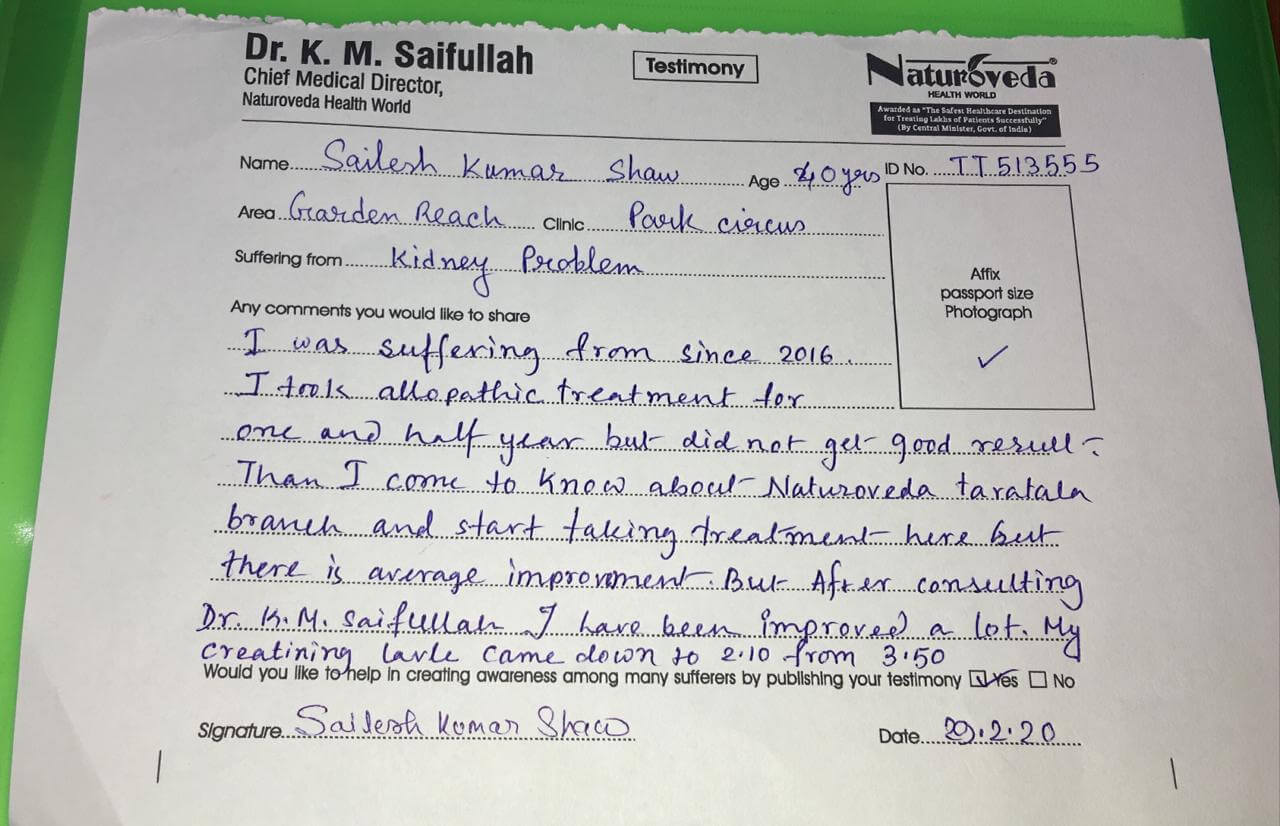 Dr. K. M. Saifullah
Chief Medical Director,
Naturoveda Health World
Testimony
Naturoveda®
HEALTH WORLD
Awarded as "The Safest Healthcare Destination
for Treating Lakhs of Patients Successfully"
(By Central Minister, Govt. of India)
Name Sailesh Kumar Shaw Age 40 yrs ID No. TT513555
Area Garden Reach Clinic Park circus
Suffering from Kidney Problem
Affix
passport size
Photograph
Any comments you would like to share
I was suffering from since 2016.
I took allopathic treatment for
one and half year but did not get good result.
Than I come to know about Naturoveda taratala
branch and start taking treatment here but
there is average improvment. But After consulting
Dr. K.M. Saifullah I have been improved a lot. My
creatining lavle came down to 2.10 from 3.50
Would you like to help in creating awareness among many sufferers by publishing your testimony Yes No
Signature Sailesh Kumar Shaw Date 29.2.20